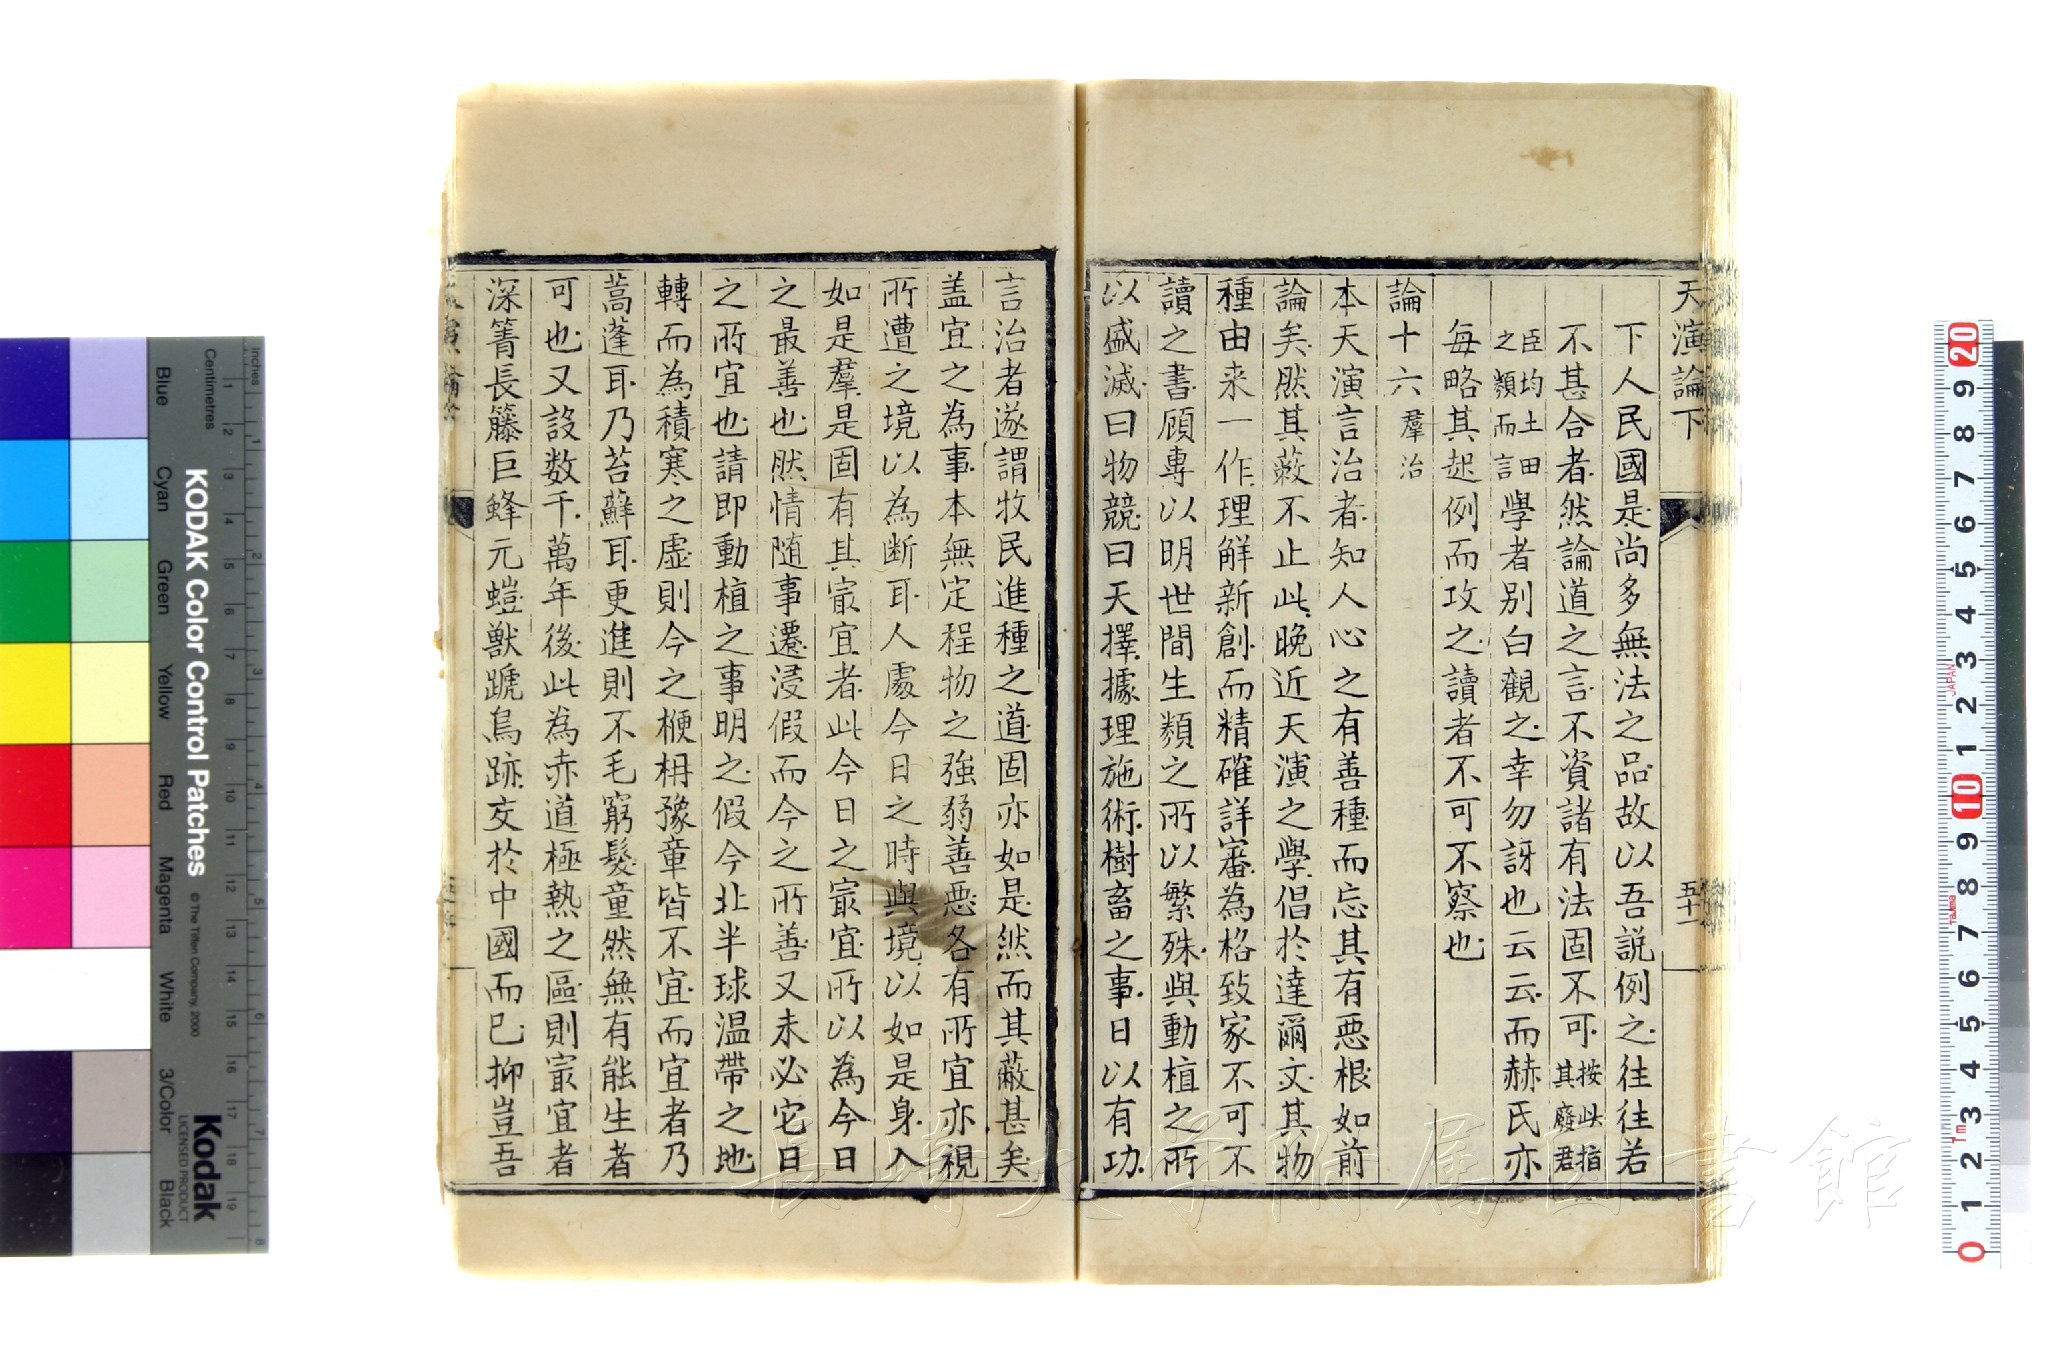 天演論下
五十一
下人民國是尚多無法之品故以吾説例之往往若
不甚合者然論道之言不資諸有法固不可按此指其廢君
臣均土田之類而言學者別白觀之幸勿訝也云云而赫氏亦
每略其起例而攻之讀者不可不察也
論十六羣治
本天演言治者知人心之有善種而忘其有惡根如前
論矣然其蔽不止此晚近天演之學倡於達爾文其物
種由来一作理解新創而精確詳審為格致家不可不
讀之書顧專以明世間生類之所以繁殊與動植之所
以盛滅曰物競曰天擇據理施術樹畜之事日以有功
言治者遂謂牧民進種之道固亦如是然而其蔽甚矣
盖宜之為事本無定程物之強弱善惡各有所宜亦視
所遭之境以為断耳人處今日之時與境以如是身入
如是羣是固有其㝡宜者此今日之㝡宜所以為今日
之最善也然情随事遷浸假而今之所善又未必它日
之所宜也請即動植之事明之假今北半球温帶之地
轉而為積寒之虛則今之楩枏豫章皆不宜而宜者乃
蒿蓬耳乃苔蘚耳更進則不毛窮髮童然無有能生者
可也又設数千萬年後此為赤道極熱之區則㝡宜者
深箐長籐巨蜂元螘獸蹏鳥跡交於中國而已抑豈吾
長崎大学附属図書館
KODAK Color Control Patches
© The Tiffen Company, 2000
Kodak
LICENSED PRODUCT
Inches
Centimetres
Blue
Cyan
Green
Yellow
Red
Magenta
White
3/Color
Black
1 2 3 4 5 6 7 8 9 10 11 12 13 14 15 16 17 18 19
1 2 3 4 5 6 7 8
0 1 2 3 4 5 6 7 8 9 10 1 2 3 4 5 6 7 8 9 20
JAPAN
Tajima
Tm